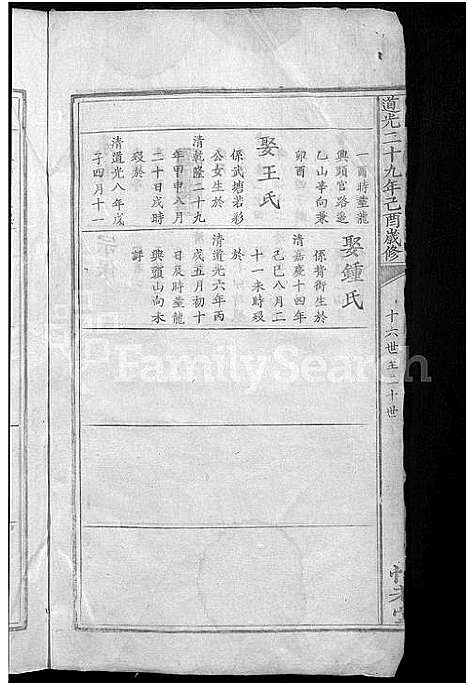 道光二十九年己酉歲修
十六世至二十世
一日酉時塟龍
興頭官路邊
乙山辛向兼
卯酉
娶王氏
係武塘若彩
公女生於
清乾隆二十九
年甲申八月
二十日戌時
歿於
清道光八年戊
子四月十一
娶鍾氏
係背街生於
清嘉慶十四年
己巳八月二
十一未時歿
於
清道光六年丙
戌五月初十
日辰時塟龍
興頭山向未
詳
FamilySearch